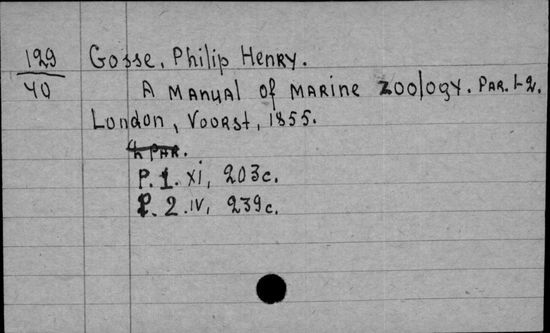 129
40
Gosse, Philip Henry.
A Manual of Marine Zoology. Par. 1-2.
London, Voorst, 1855.
P. 1. XI, 203c.
P. 2. IV, 239c.